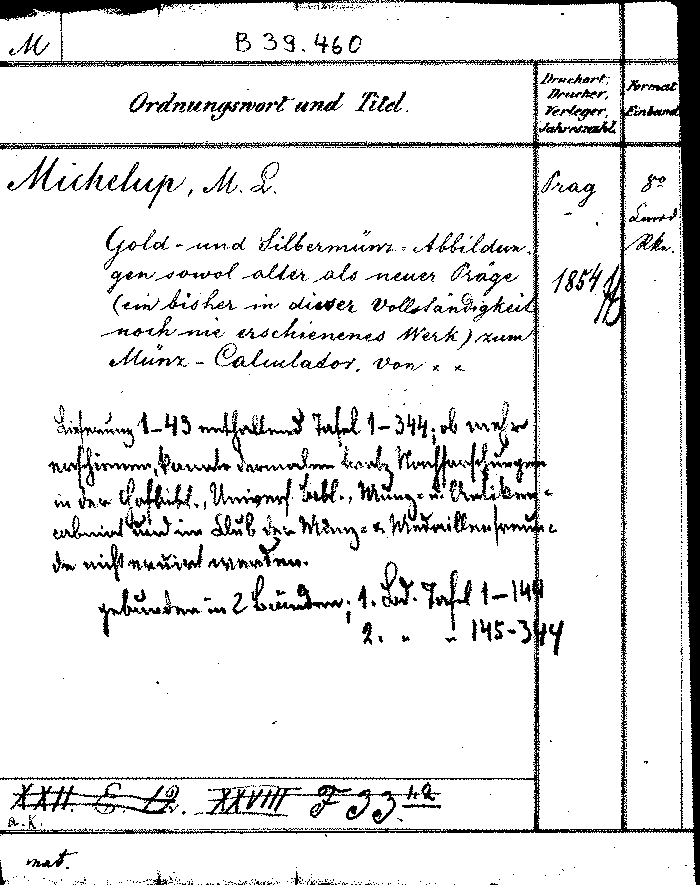 M
B 39.460
Ordnungswort und Titel.
Druckort,
Drucker,
Verleger,
Jahreszahl.
Format
Einband
Michelup, M. L.
Prag
8o
Lwd
Rkn.
Gold- und Silbermünz-Abbildun-
gen sowol alter als neuer Präge
1854 ff
(ein bisher in dieser Vollständigkeit
noch nie erschienenes Werk) zum
Münz-Calculator, von " "
Lieferung 1–43 enthaltend Tafel 1–344; ob mehr
erschienen, konnte dermalen trotz Nachforschungen
in der Hofbibl., Univers. Bibl., Münz- u. Antiken-
cabinet und im Club der Münz- u. Medaillenfreun-
de nicht eruirt werden.
gebunden in 2 Bänden; 1. Bd. Tafel 1–144
2. " " 145-344
XXII. E. 12. XXVIII F 33 1.2
a.K.
mat.